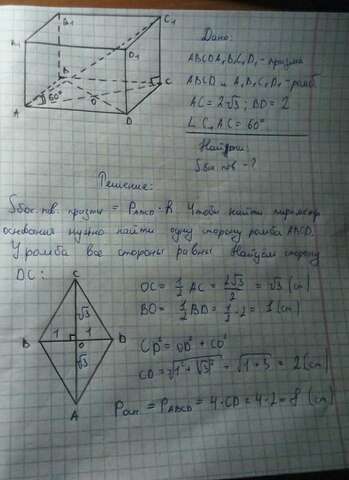 B₁
C₁
A₁
D₁
B
C
60°
O
A
D
Дано:
ABCDA₁B₁C₁D₁ - призма
ABCD и A₁B₁C₁D₁ - ромб
AC = 2√3 ; BD = 2
∠ C₁AC = 60°
Найти:
Sбок. пов - ?
Решение:
Sбок. пов. призмы = P_ABCD · h. Чтобы найти периметр
основания нужно найти одну сторону ромба ABCD.
У ромба все стороны равны. Найдем сторону
DC:
C
√3
B
1
1
D
O
√3
A
OC = 1/2 AC = 2√3/2 = √3 (см)
BO = 1/2 BD = 1/2 · 2 = 1 (см)
CD² = OD² + CO²
CD = √1² + √3² = √1+3 = 2 (см)
Pосн = P_ABCD = 4·CD = 4·2 = 8 (см)